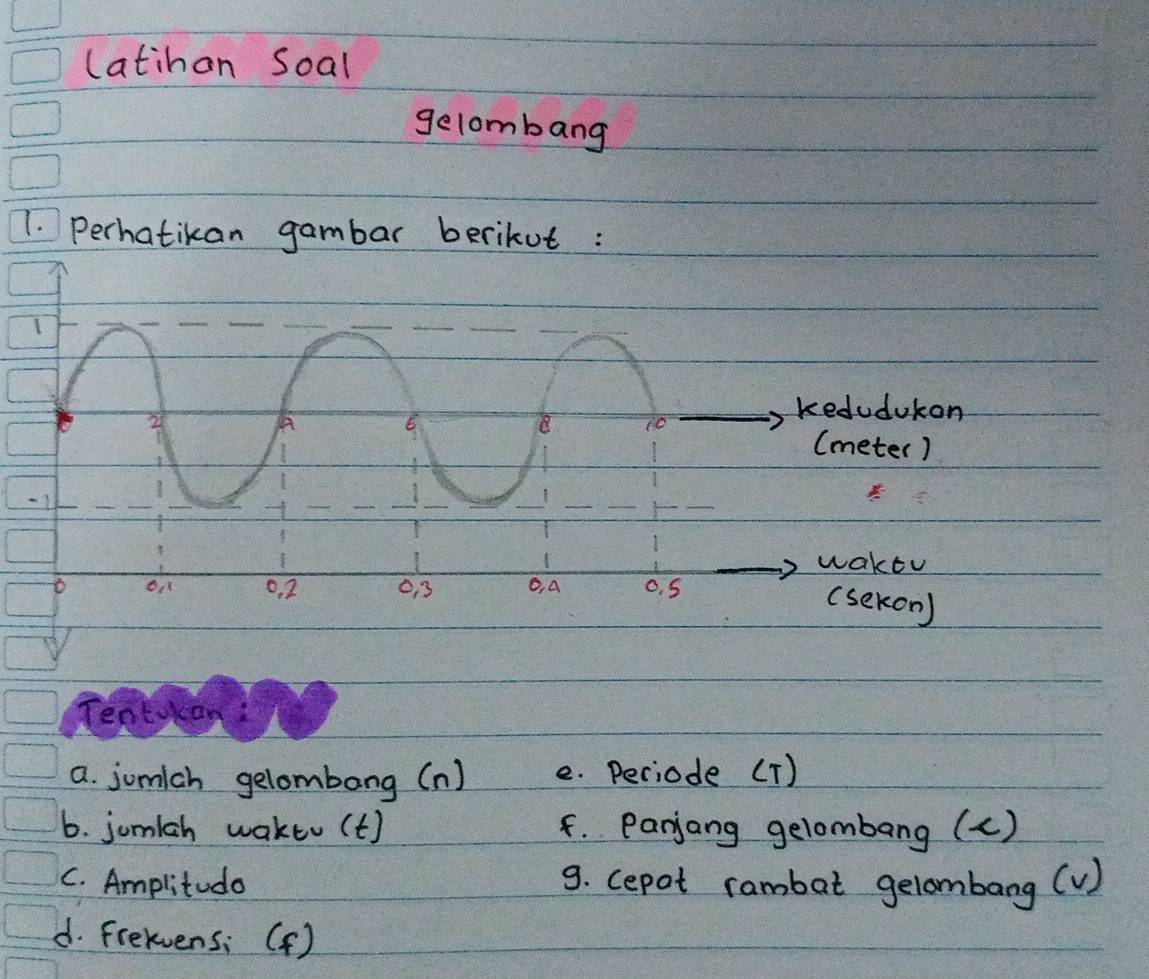 Latihan Soal
gelombang
1. Perhatikan gambar berikut :
1
0 2 4 6 8 10
kedudukan
(meter)
-1
waktu
0 0,1 0,2 0,3 0,4 0,5
(sekon)
Tentukan :
a. jumlah gelombang (n)
e. Periode (T)
b. jumlah waktu (t)
f. Panjang gelombang (λ)
c. Amplitudo
g. cepat rambat gelombang (v)
d. Frekuensi (f)